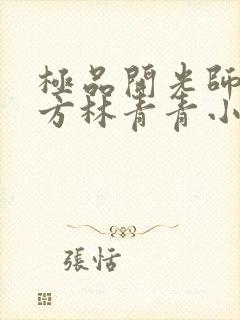 極品開光師
方林青青小
張恬